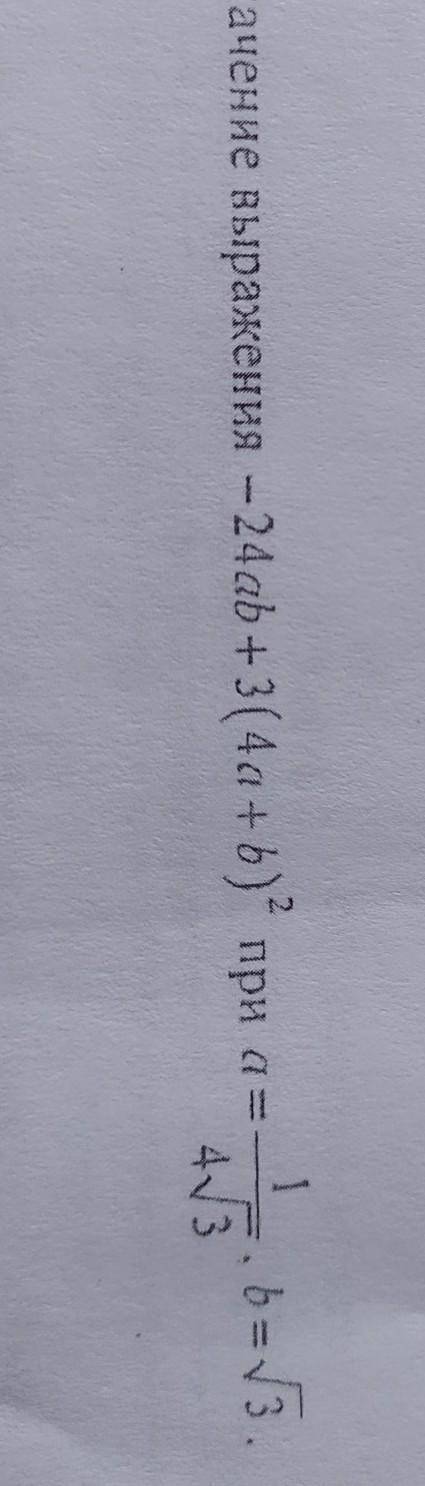 ачение выражения −24ab + 3(4a + b)² при a = 1/(4√3), b = √3.